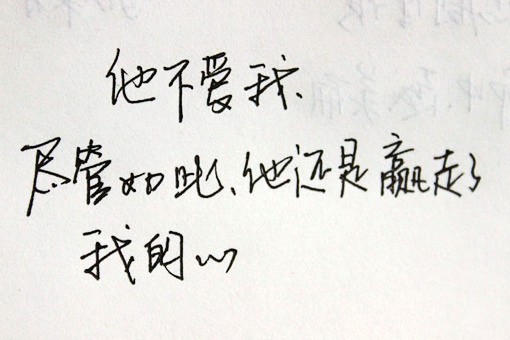 他不爱我、
尽管如此、他还是赢走了
我的心